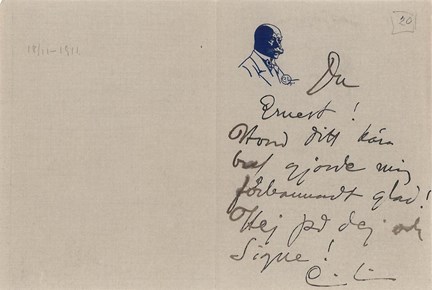 18/11-1911
20
Du
Ernest!
Hvad ditt kära
bref gjorde mig
förbannadt glad!
Hej på dej och
Signe!